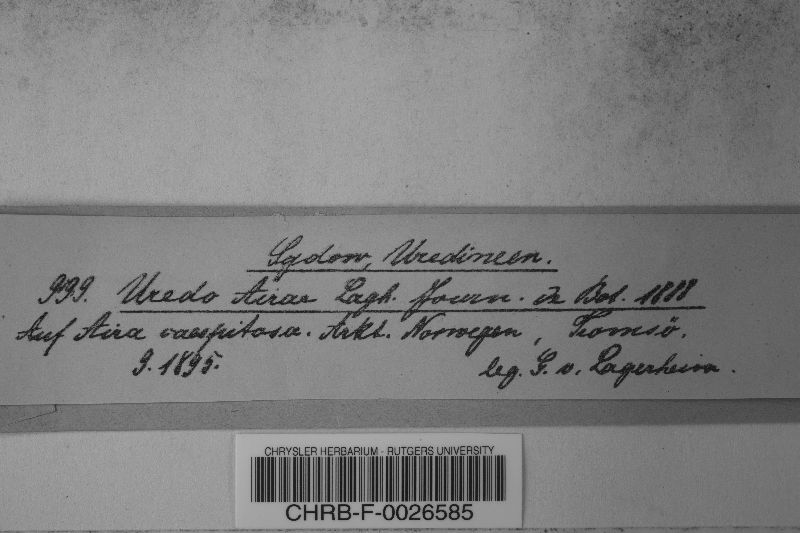 Sydow, Uredineen.
999. Uredo Airae Lagh. Journ. de Bot. 1888
Auf Aira caespitosa. Arkt. Norwegen, Tromsö.
9. 1895. leg. G. v. Lagerheim.
CHRYSLER HERBARIUM - RUTGERS UNIVERSITY
CHRB-F-0026585